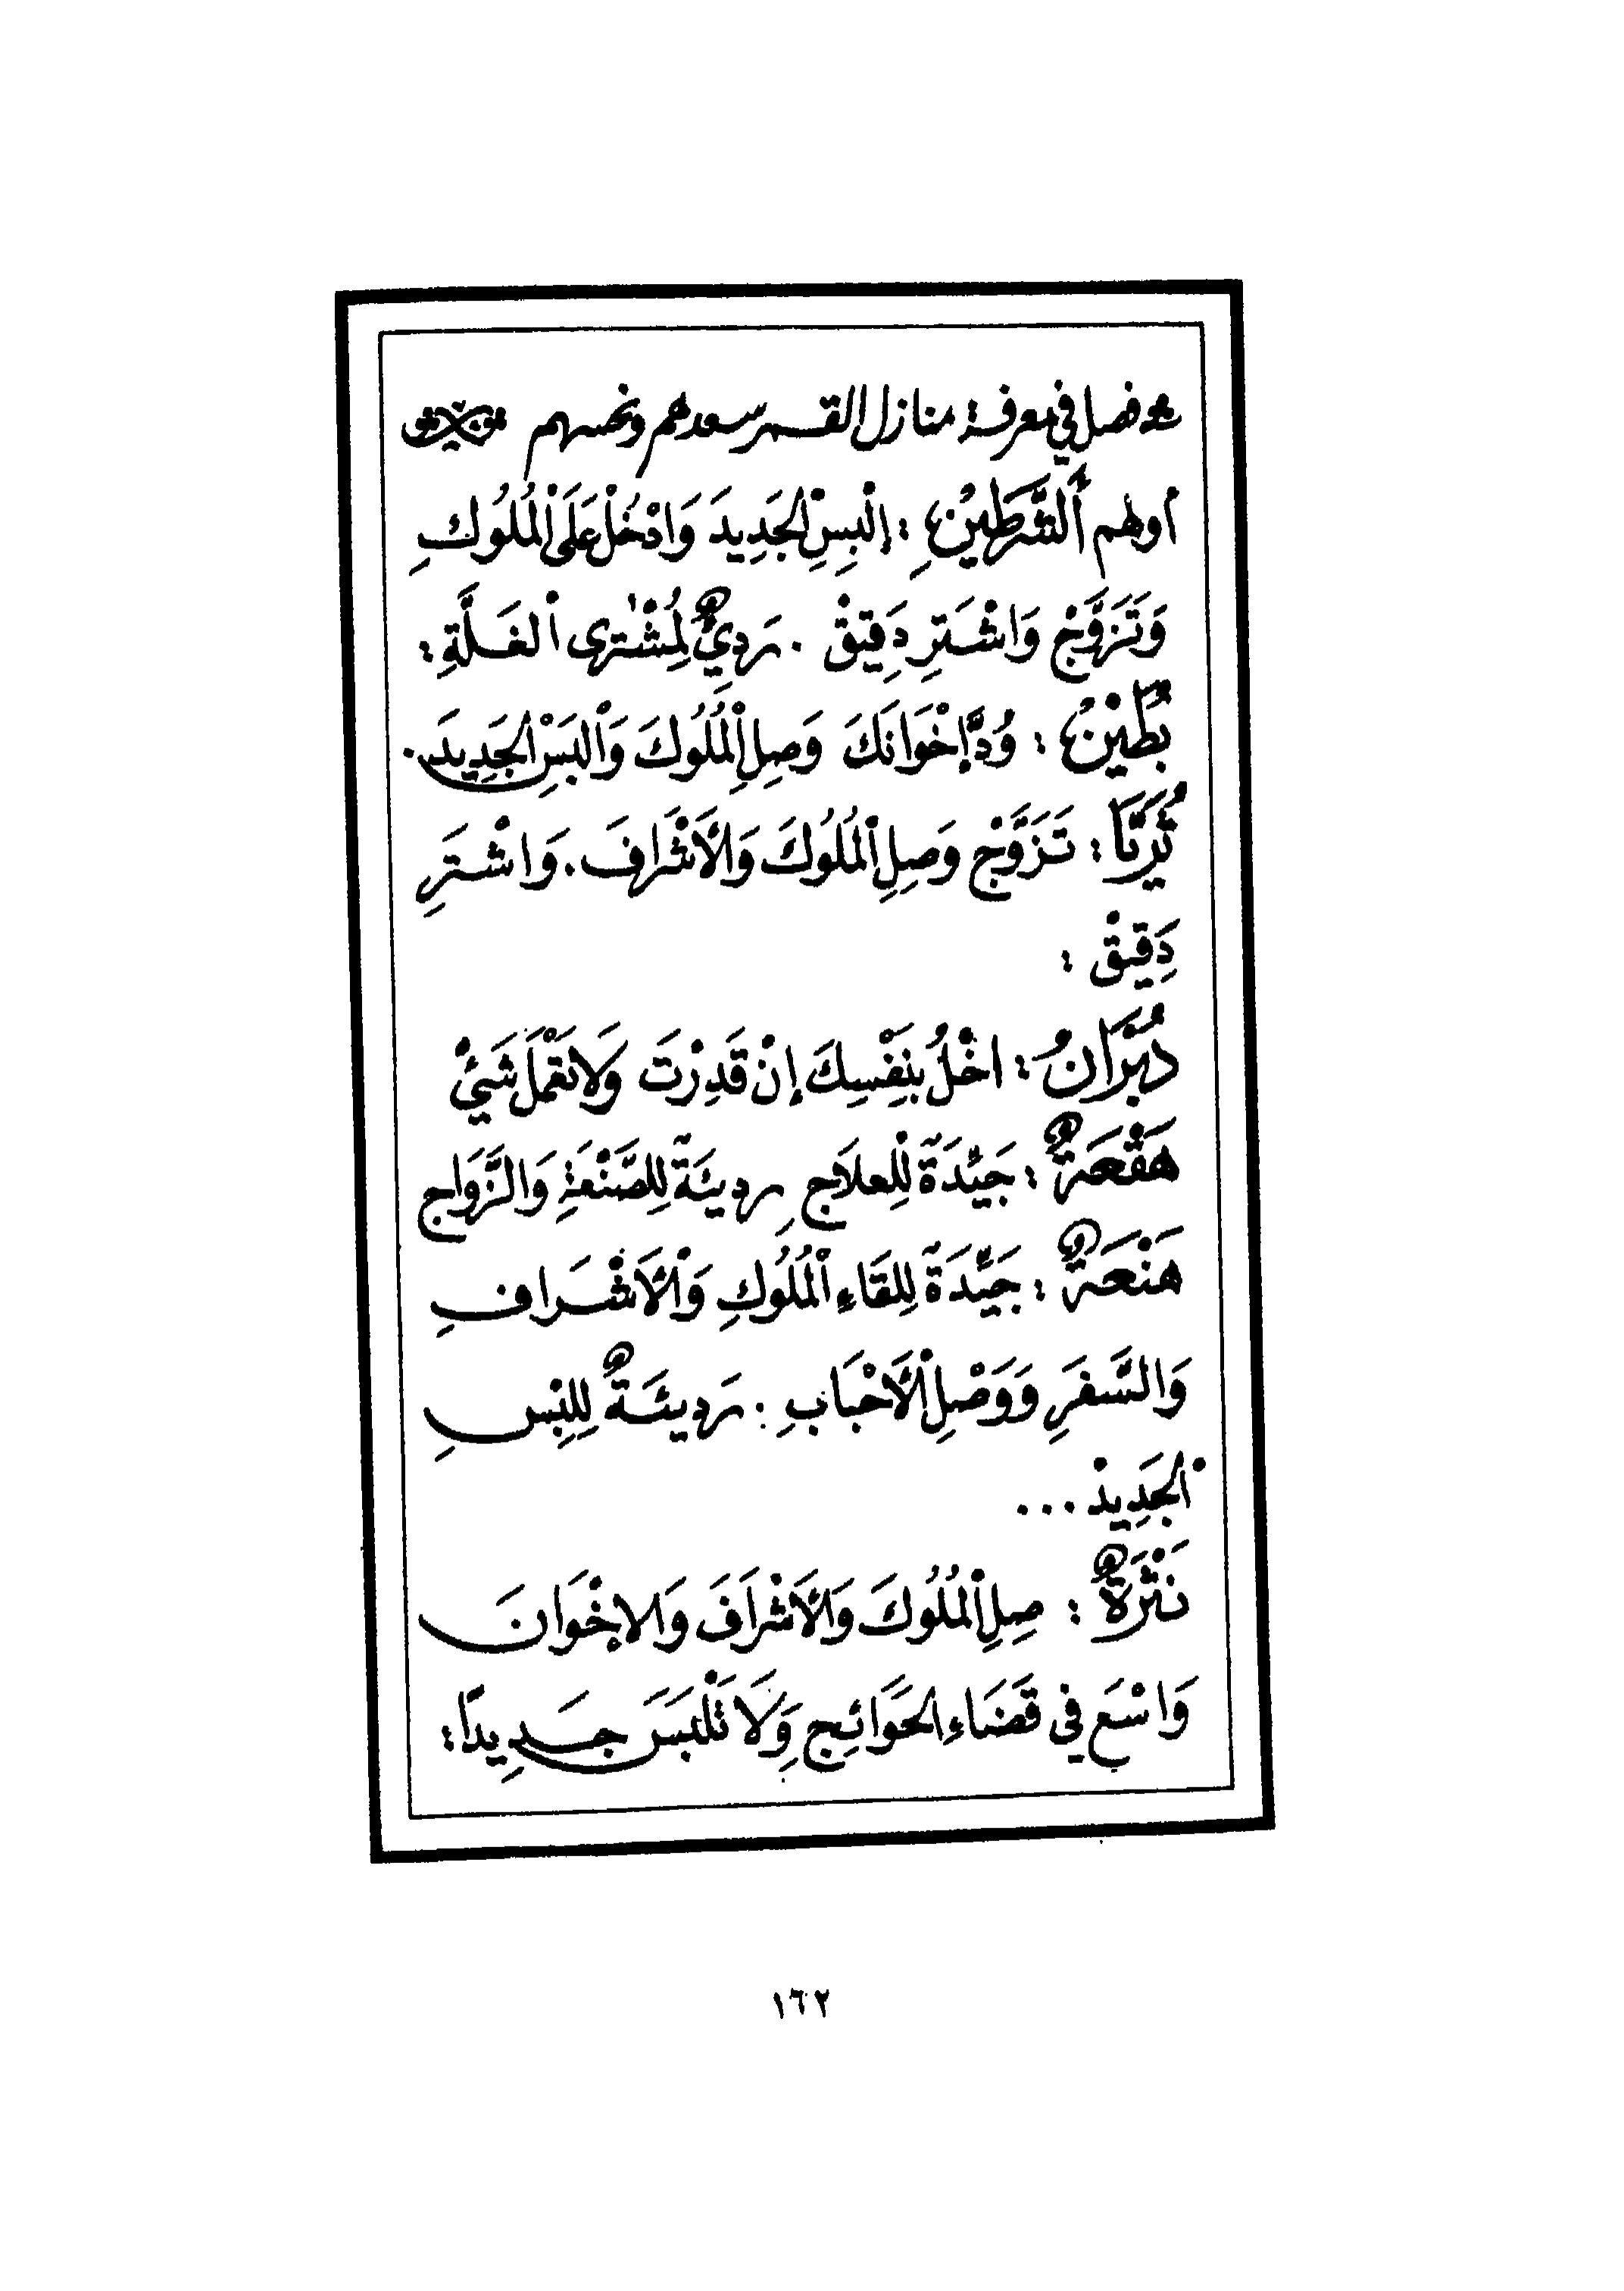 فصل في معرفة منازل القمر سعدهم ونحسهم
اولهم أَلشَّرَطَيْنُ : إلْبِسِ الجَدِيدَ وَادْخُلْ عَلَى الْمُلُوكِ
وَتَزَوَّجْ وَاشْتَرِ دَقِيقْ . رَدِيٌّ لِمُشْتَرى الغَلَّةِ :
بُطَيْنُ : وُدَّ إخْوَانَكَ وَصِلِ الْمُلُوكَ وَالْبَسْ الجَدِيدَ .
ثُرَيَّا : تَزَوَّجْ وَصِلِ الْمُلُوكَ وَالأَشْرَافَ . وَاشْتَرِ
دَقِيقْ :
دُبْرَانُ : اخْلُ بِنَفْسِكَ إنْ قَدِرْتَ وَلَا تَعْمَلْ شَيْئ
هَقْعَةٌ : جَيِّدَةٌ لِلْعلَاجِ رديئَةٌ لِلصَّنْعَةِ وَالزَّوَاجِ
هَنْعَةٌ : جَيِّدَةٌ لِلقَاءِ الْمُلُوكِ وَالأَشْرَافِ
وَالسَّفَرِ وَوَصْلِ الأَحْبَابِ : رَدِيئَةٌ لِلِبْسِ
الجَدِيدْ ...
نَثْرَةٌ : صِلِ الْمُلُوكَ وَالأَشْرَافَ وَالإخْوَانَ
وَاسْعَ فِي قَضَاءِ الحَوَائِجِ وَلَا تَلْبَسَ جَدِيدًا :
١٦٢